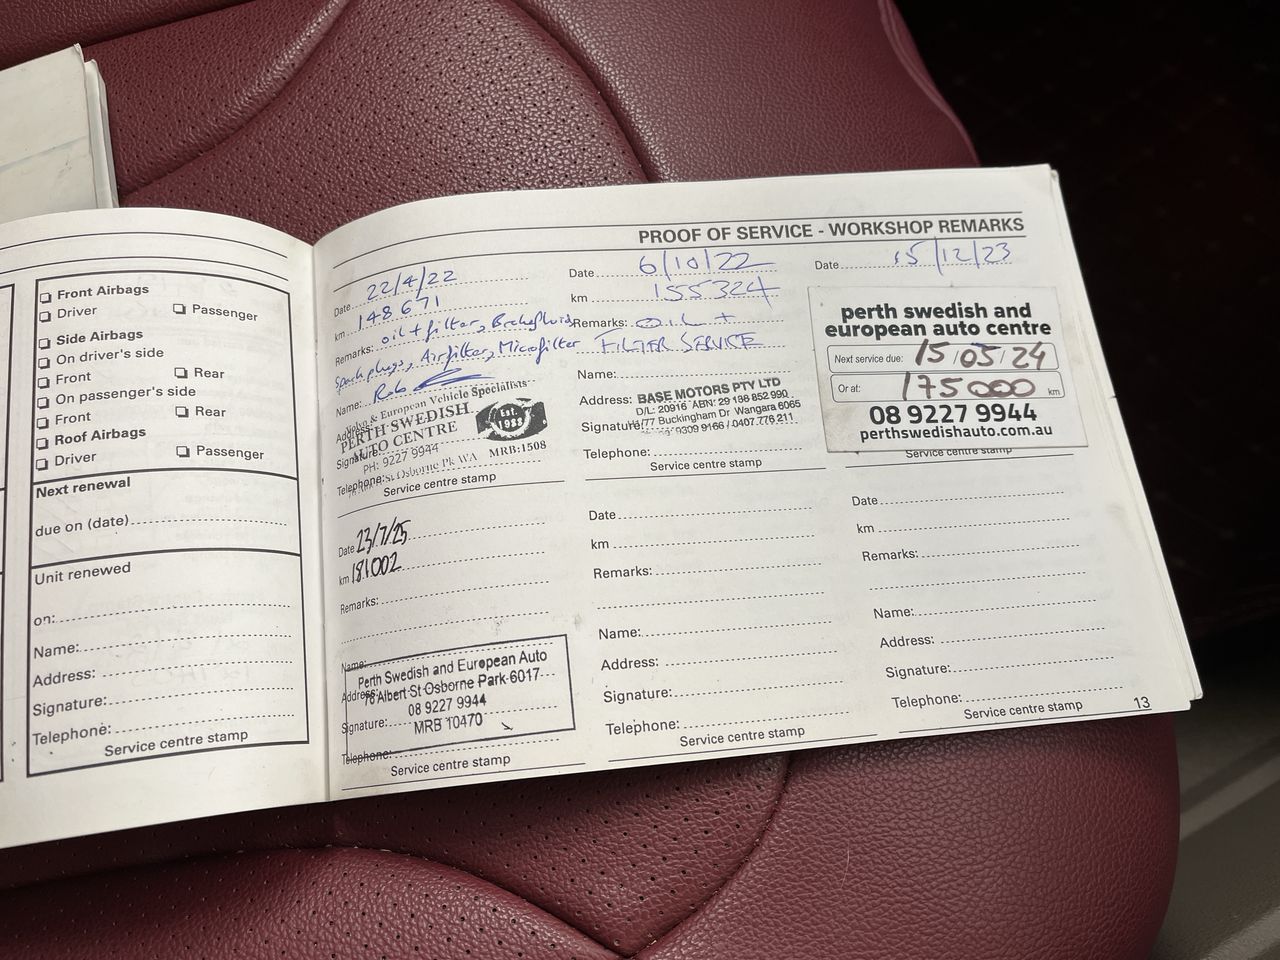 Front Airbags
Driver
Passenger
Side Airbags
On driver's side
Front
Rear
On passenger's side
Front
Rear
Roof Airbags
Driver
Passenger
Next renewal
due on (date)
Unit renewed
on:
Name:
Address:
Signature:
Telephone:
Service centre stamp
PROOF OF SERVICE - WORKSHOP REMARKS
Date 22/4/22
km 148671
Remarks: oil + filter, Brake fluid,
Spark plugs, Airfilter, Microfilter
Name: Rob
Volvo & European Vehicle Specialists
Address:
PERTH SWEDISH
AUTO CENTRE
Est. 1988
Signature:
PH: 9227 9944
Telephone: St Osborne Pk WA MRB:1508
Service centre stamp
Date 6/10/22
km 155324
Remarks: OIL +
FILTER SERVICE
Name:
Address: BASE MOTORS PTY LTD
D/L: 20916 ABN: 29 138 852 990
Signature: 77 Buckingham Dr Wangara 6065
9309 9166 / 0407 776 211
Telephone:
Service centre stamp
Date 15/12/23
perth swedish and
european auto centre
Next service due: 15/05/24
Or at: 175000 km
08 9227 9944
perthswedishauto.com.au
Service centre stamp
Date 23/7/25
km 181002
Remarks:
Name:
Perth Swedish and European Auto
Address: 76 Albert St Osborne Park 6017
08 9227 9944
Signature: MRB 10470
Telephone:
Service centre stamp
Date
km
Remarks:
Name:
Address:
Signature:
Telephone:
Service centre stamp
Date
km
Remarks:
Name:
Address:
Signature:
Telephone:
Service centre stamp
13